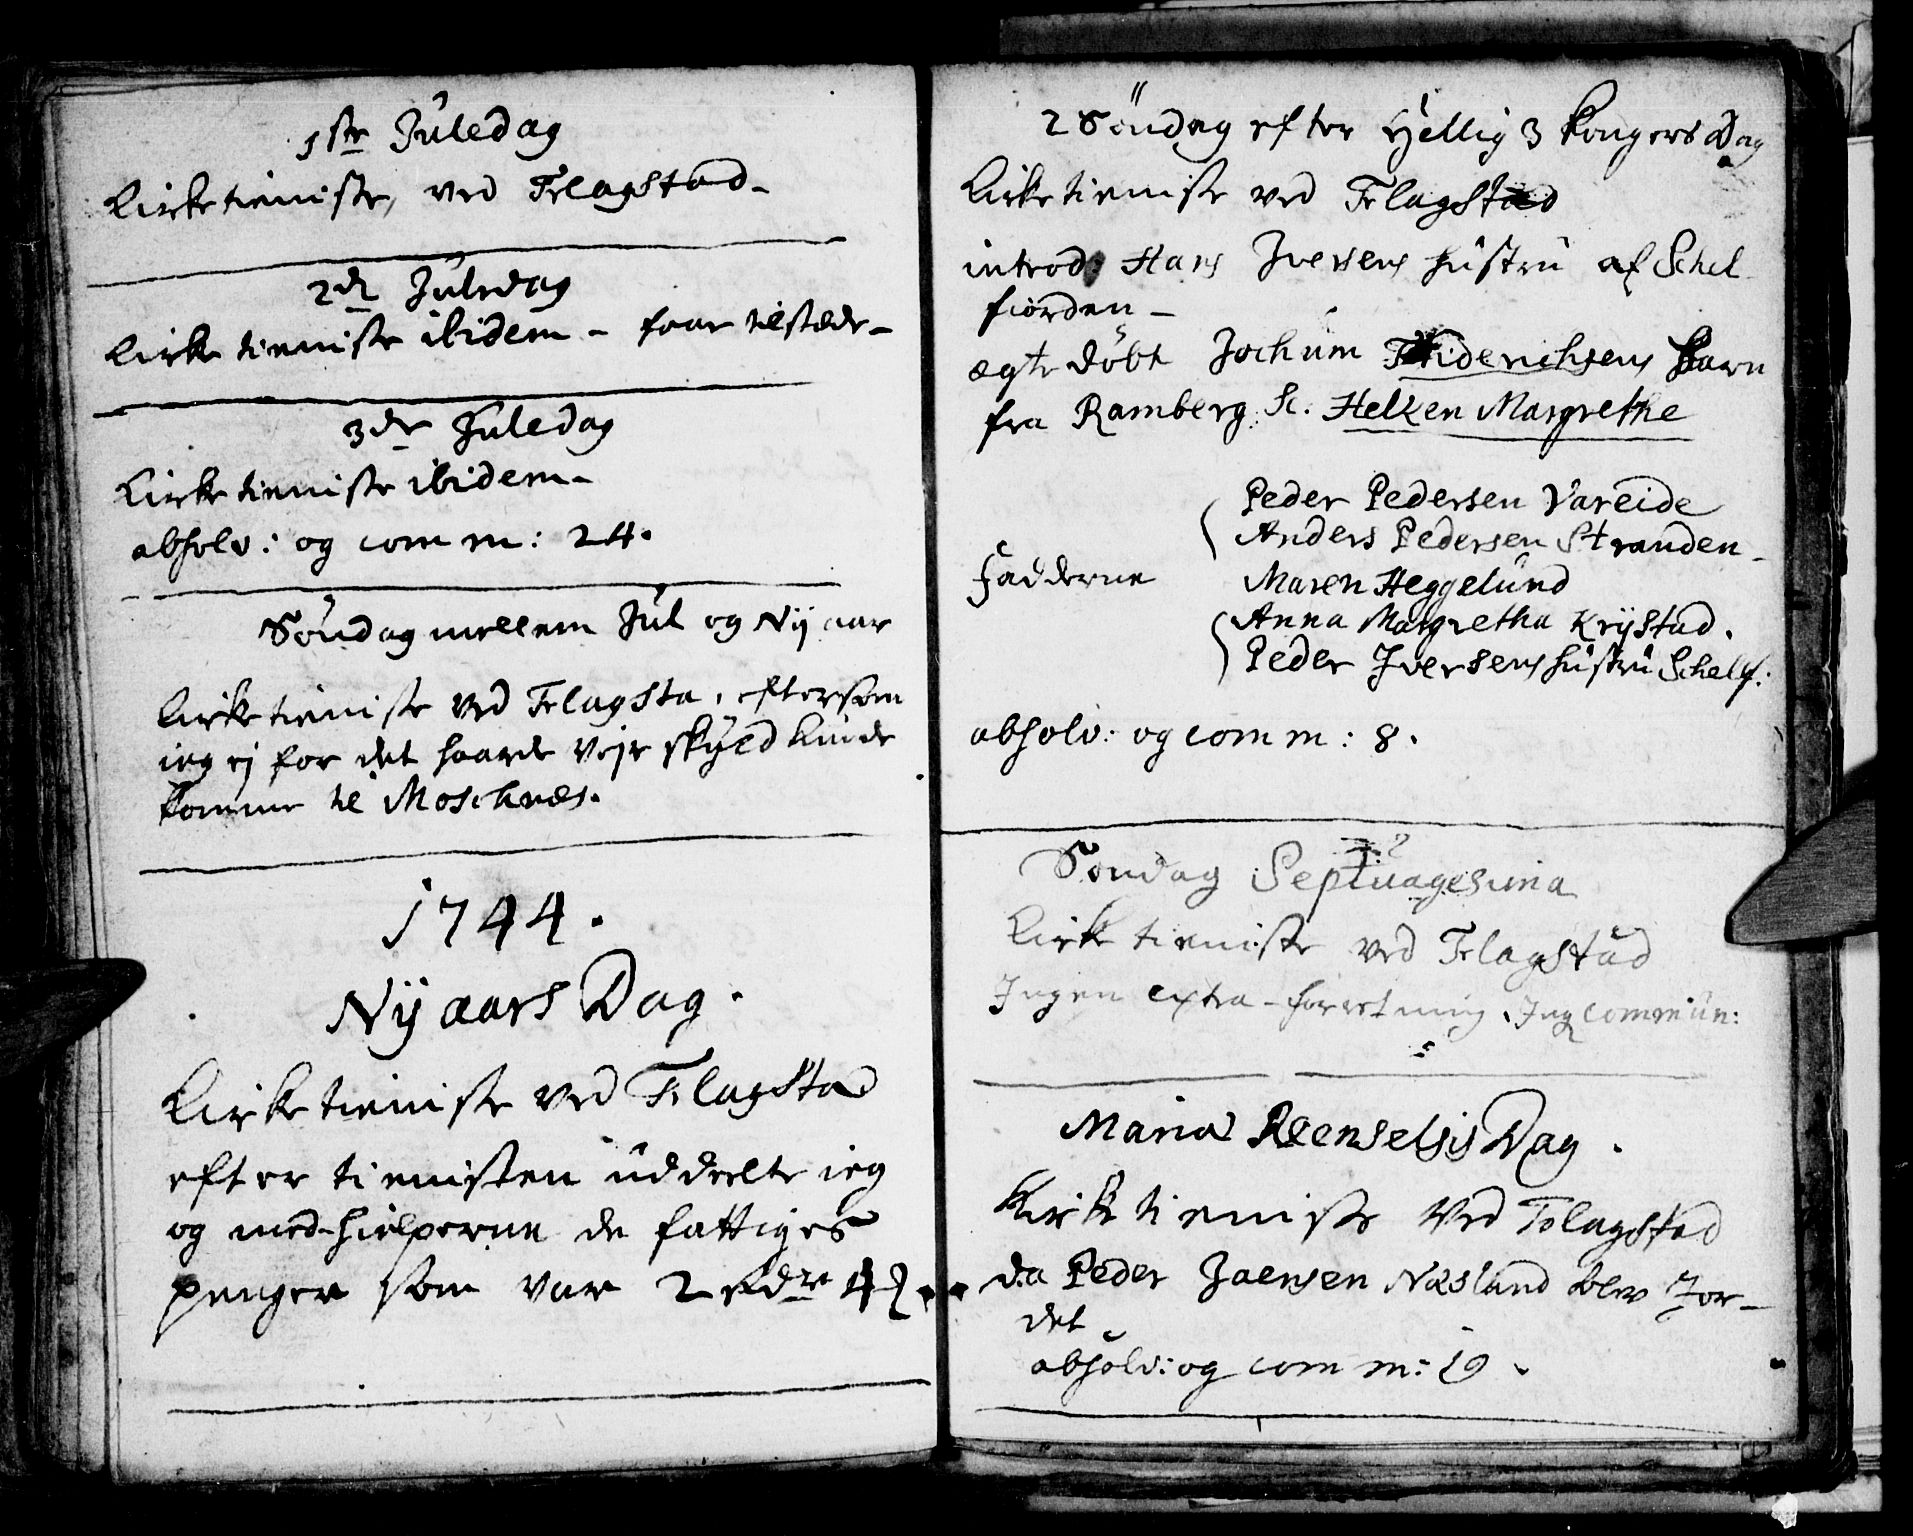 1ste Juledag
Kirketieniste, ved Flagstad.
2den Juledag
Kirketieniste ibidem - faae tilstæde -
3die Juledag
Kirketieniste ibidem.
absolv: og comm: 24.
Söndag mellem Jul og Nÿ aar
Kirketieniste ved Flagsta, eftersom
ieg ej for det haarde vejr skyld kunde
komme til Moschnæs.
1744.
Nÿ aars Dag.
Kirketieniste ved Flagstad
efter tienisten uddeelte ieg
og med-hielperne de fattiges
penger som var 2 rdr 4 ß.
2 Söndag efter Hellig 3 kongers Dag
Kirketieniste ved Flagstad
introd: Hans Iversens hustru af Schel
fiorden -
ægte döbt Jochum Friderichsens barn
fra Ramberg. Sc. Helken Margrethe
Peder Pedersen Vareide
Anders Pedersen Stranden
Fadderne Maren Heggelund
Anna Margretha Krÿstad.
Peder Iversens hustru Schelf:
absolv: og comm: 8.
Söndag Septuagesima
Kirketieniste ved Flagstad
Ingen extra-forretning. Ing commün:
Mariæ Reenselsis Dag.
Kirketieniste ved Flagstad
da Peder Joensen Næsland blev Jor-
det
absolv: og comm: 19.